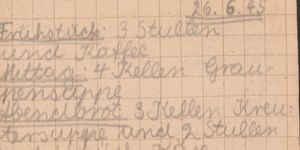 26. 6. 45
Frühstück: 3 Stullen
und Kaffee
Mittag: 4 Kellen Grau-
pensuppe
Abendbrot 3 Kellen Kreu-
tersuppe und 2 Stullen